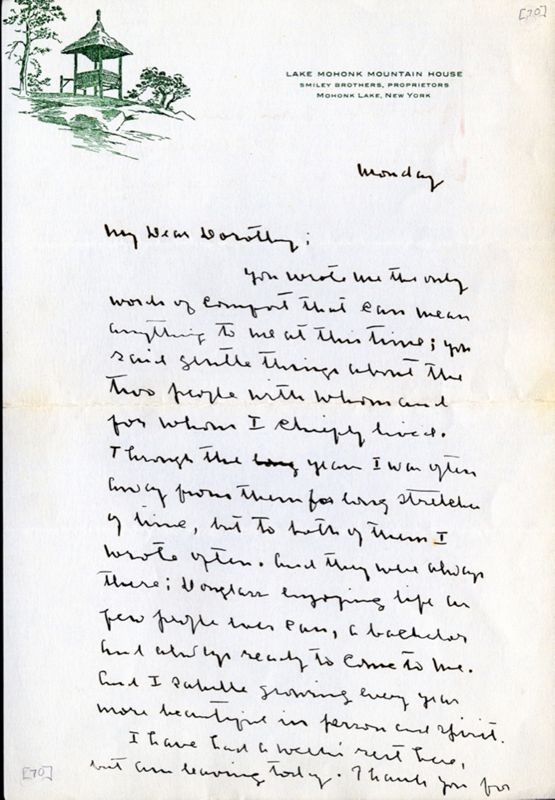 [70]
LAKE MOHONK MOUNTAIN HOUSE
SMILEY BROTHERS, PROPRIETORS
MOHONK LAKE, NEW YORK
Monday
My Dear Dorothy;
You wrote me the only
words of comfort that can mean
anything to me at this time; you
said gentle things about the
two people with whom and
for whom I chiefly lived.
Through the long years I was often
away from them for long stretches
of time, but to both of them I
wrote often. And they were always
there; Douglass enjoying life as
few people ever can, a bachelor
and always ready to come to me.
And Isabelle growing every year
more beautiful in person and spirit.
I have had a week's rest here,
but am leaving today. Thank you for
[70]